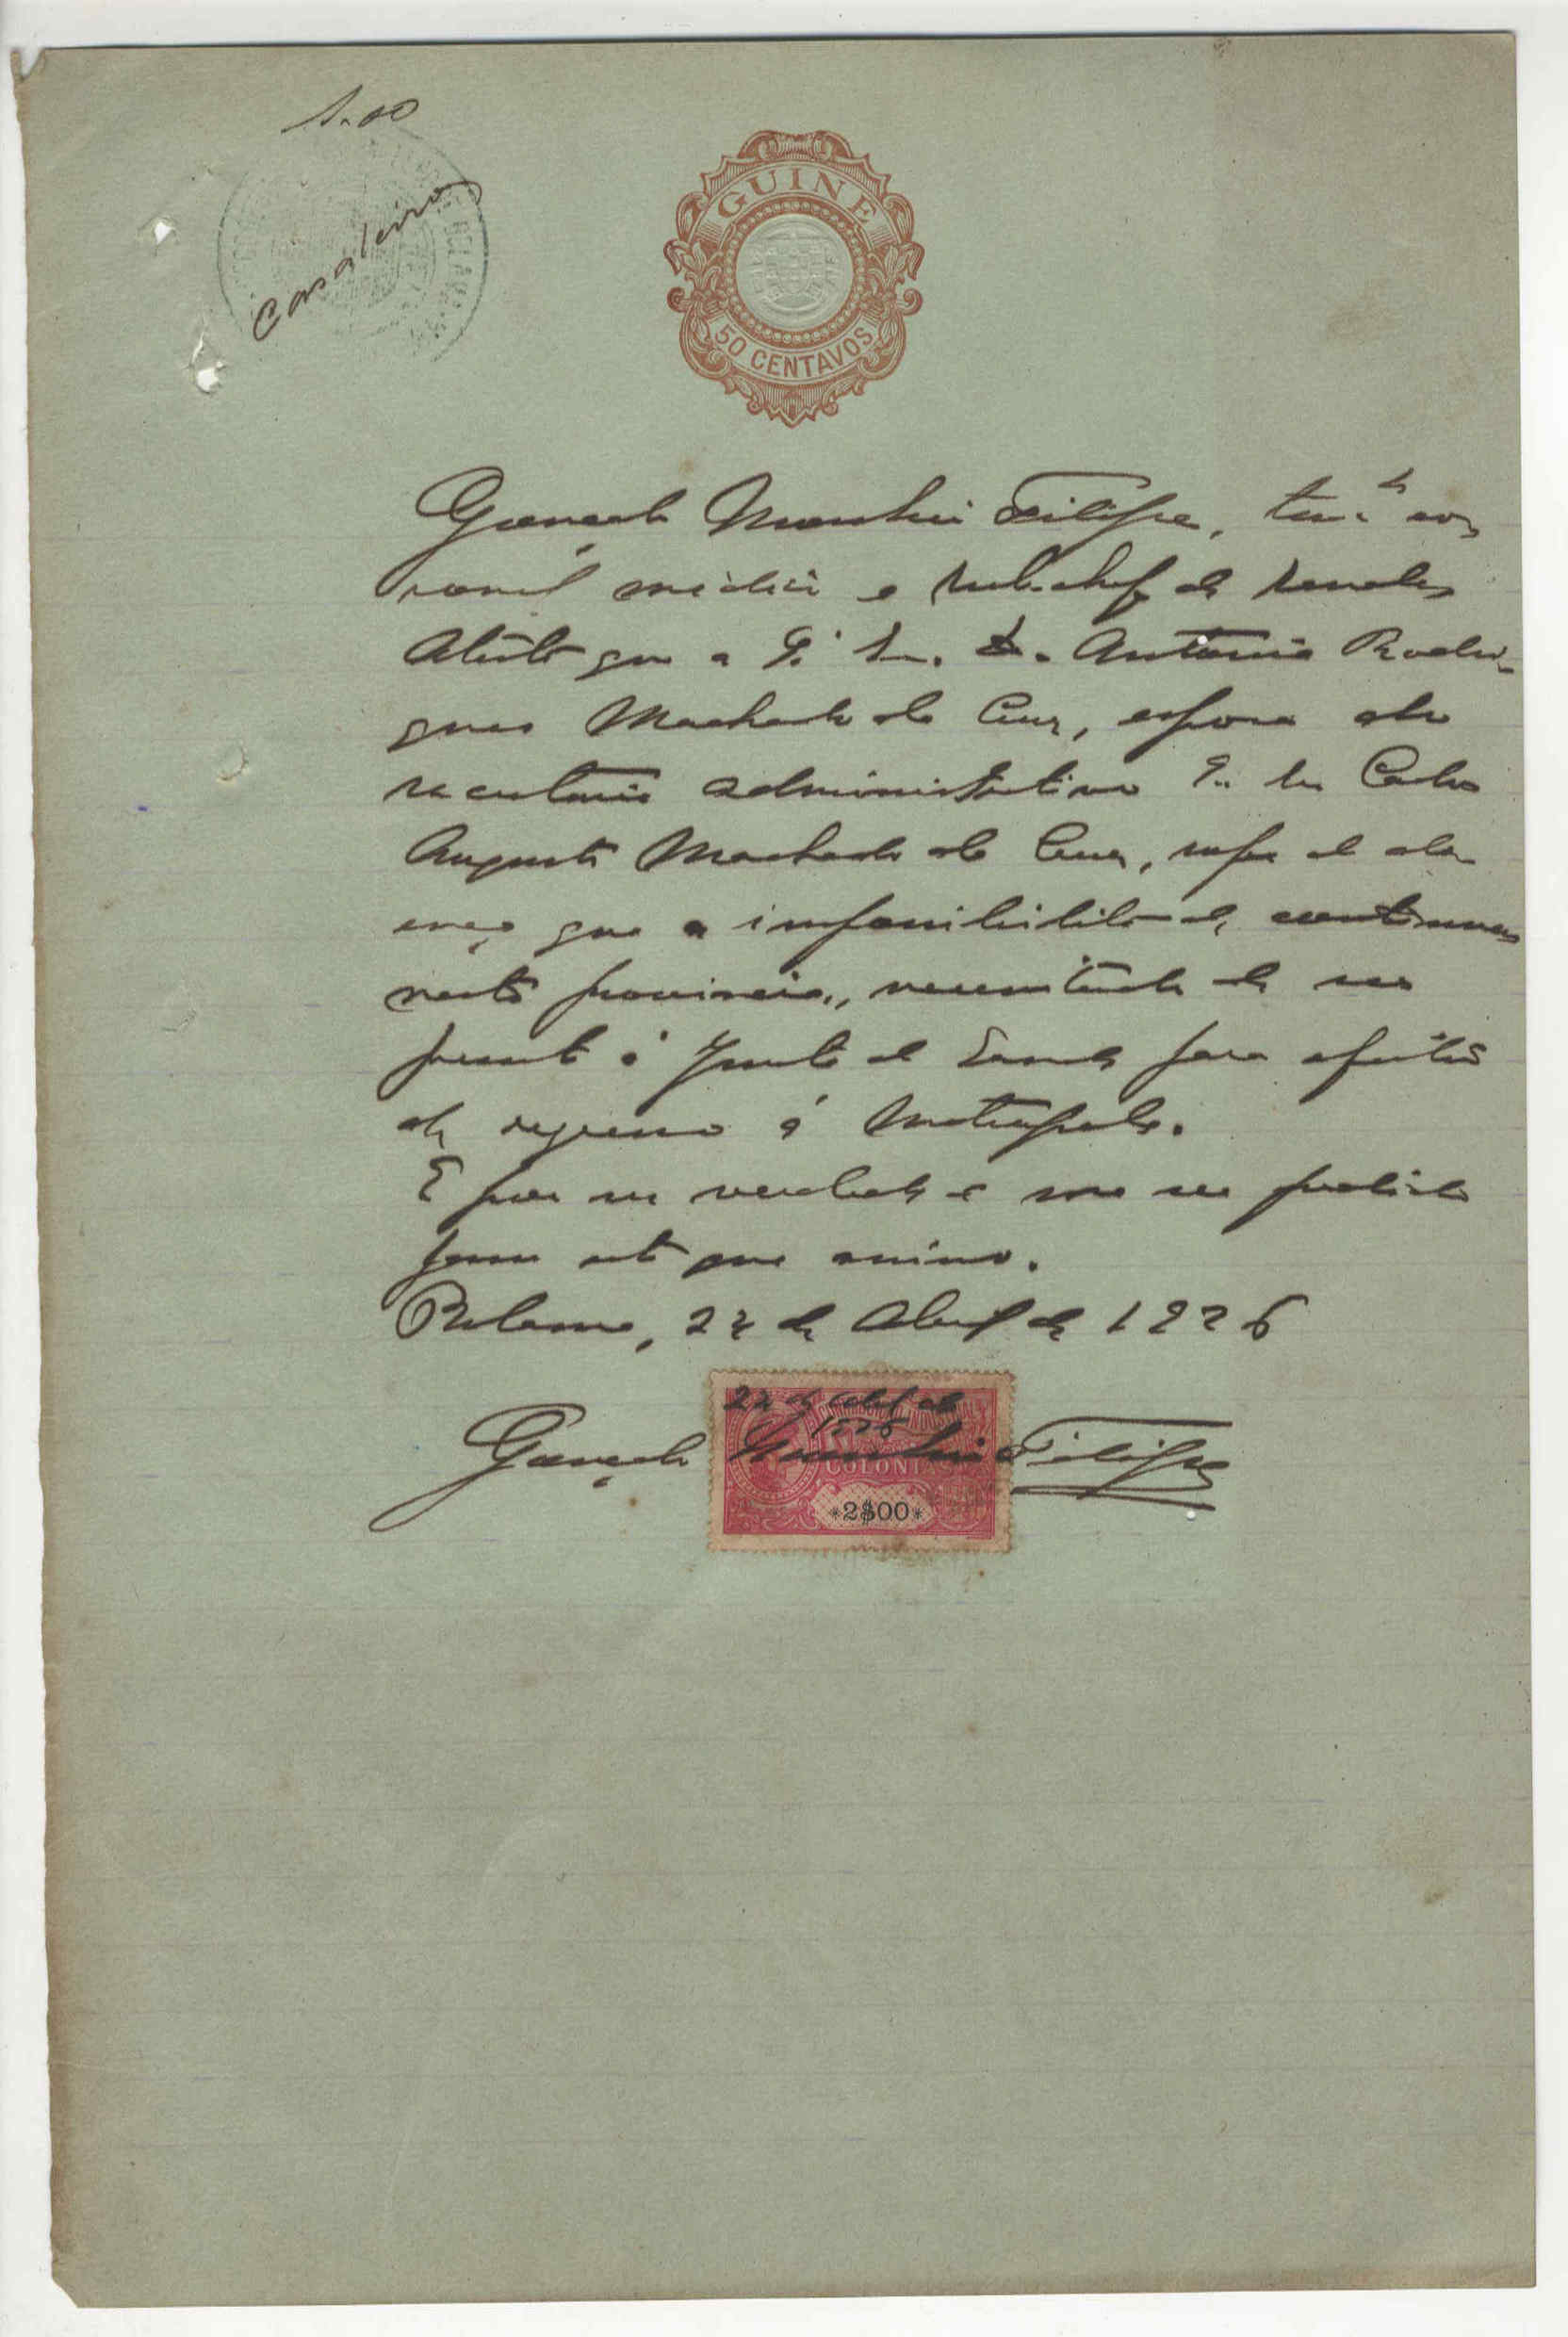 1.00
Casaleiro
GUINE
50 CENTAVOS
Gonçalo Monteiro Filipe, ten.te co
ronel médico e sub-chefe de saude
Atesto que a Ex. Sr. D. Antonia Rodri-
gues Machado da Cruz, esposa do
secretario administrativo Ex. Sr. Carlos
Augusto Machado da Cruz, sofre de do
ença que a impossibilita de continuar
nesta provincia, necessitando de ser
presente á Junta de Saude para efeitos
de regresso á Metropole.
E por ser verdade e me ser pedido
passo este que assino.
Bolama, 22 de Abril de 1926
22 de Abril de
1926
Gonçalo Monteiro Filipe
COLONIAS
*2$00*